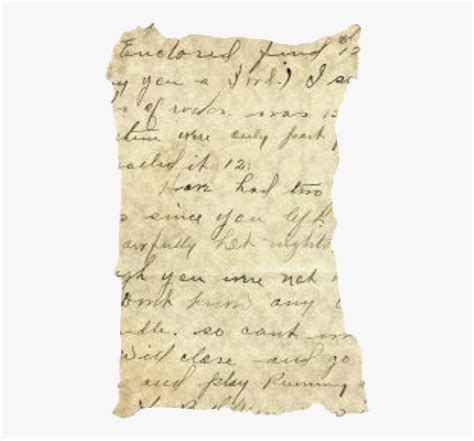 Enclosed find 12
you a Ford.) I so
of was
were only part
called it 12.
Have had two
s since you left
awfully hot nights
gh you were not
Dont know any
dle. so cant
Will close and go
and play Rummy